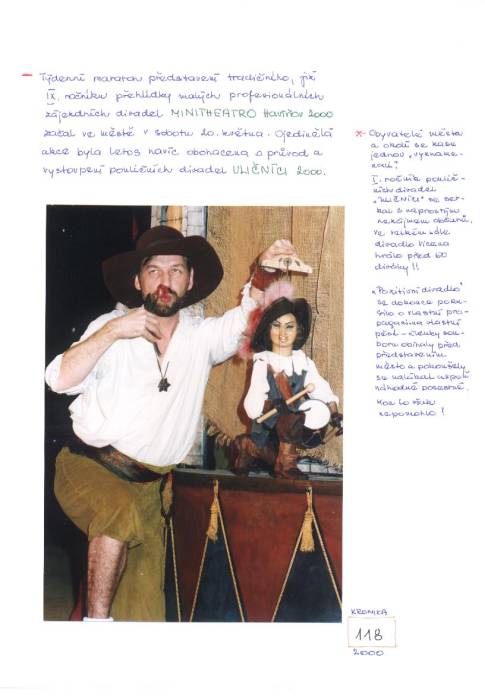 – Týdenní maraton představení tradičního, již
IX. ročníku přehlídky malých profesionálních
zájezdních divadel MINITHEATRO Havířov 2000
začal ve městě v sobotu 20. května. Ojedinělá
akce byla letos navíc obohacena o průvod a
vystoupení pouličních divadel ULIČNÍCI 2000.
x- Obyvatelé města
a okolí se zase
jednou „vyzname-
nali“
I. ročník poulič-
ních divadel
„ULIČNÍCI“ se set-
kal s naprostým
nezájmem občanů,
ve velkém sále
divadlo Vizita
hrálo před 60
diváky!!
„Pozitivní divadlo“
se dokonce poku-
silo o vlastní pro-
pagaci na vlastní
pěst – členky sou-
boru obíhaly před
představením
město a pokoušely
se nalákat aspoň
náhodné pocestné.
Moc to však
nepomohlo!
KRONIKA
118
2000